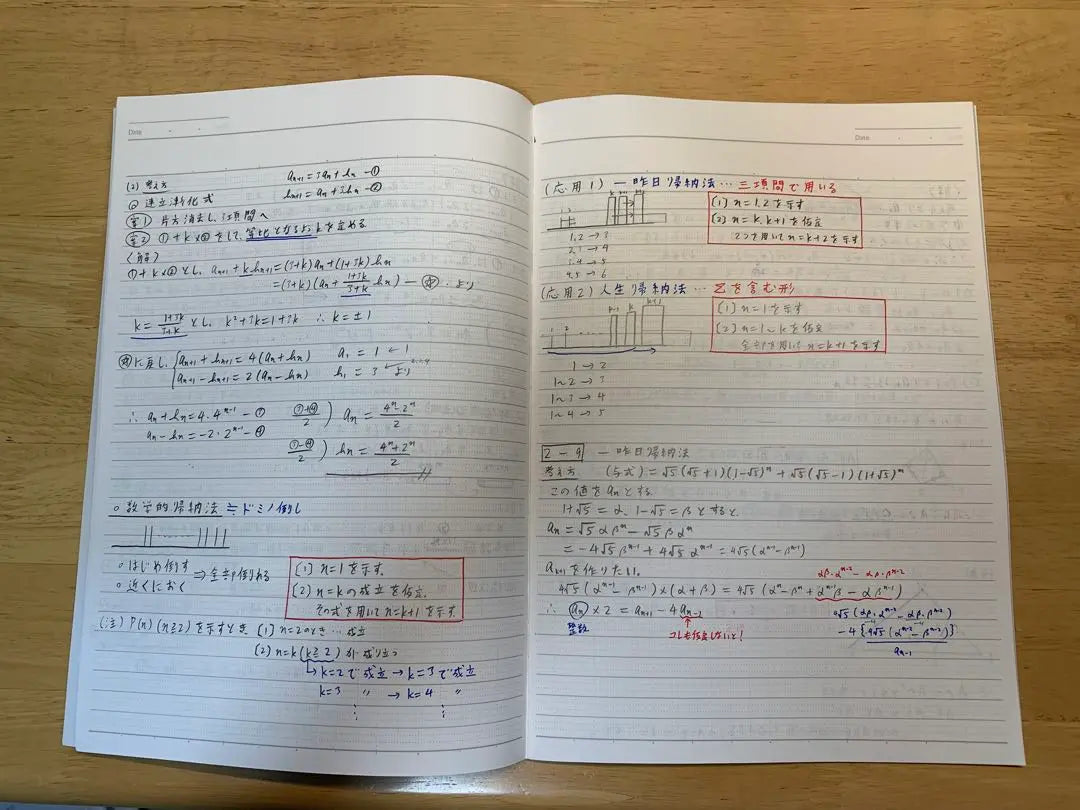 Date
(2) 考え方
aₙ₊₁ = 3aₙ + bₙ -①
bₙ₊₁ = aₙ + 3bₙ -②
◎ 連立漸化式
(案1) 片方消去し、三項間へ
(案2) ①+k×②をして、等比となるようkを定める
〈解〉
①+k×②とし、aₙ₊₁+kbₙ₊₁=(3+k)aₙ+(1+3k)bₙ
=(3+k)(aₙ+(1+3k)/(3+k) bₙ) — ☆ より
k=(1+3k)/(3+k) とし、k²+3k=1+3k ∴k=±1
☆に戻し、{aₙ₊₁+bₙ₊₁=4(aₙ+bₙ) a₁=1
aₙ₊₁-bₙ₊₁=2(aₙ-bₙ) b₁=3 より
∴ aₙ+bₙ=4・4ⁿ⁻¹ -③ (③+④)/2 ) aₙ=(4ⁿ-2ⁿ)/2
aₙ-bₙ=-2・2ⁿ⁻¹ -④
(③-④)/2 ) bₙ=(4ⁿ+2ⁿ)/2
○ 数学的帰納法 ≒ドミノ倒し
○ はじめ倒す
○ 近くにおく
⇒ 全部倒れる
(1) n=1を示す。
(2) n=kの成立を仮定、
その式を用いてn=k+1を示す。
(注) P(n)(n≧2)を示すとき、(1) n=2のとき…成立
(2) n=k(k≧2)が成り立つ
↳k=2で成立→k=3で成立
k=3 〃 →k=4 〃
Date
(応用1) 一昨日帰納法…三項間で用いる
1 2 k k+1 k+2
(1) n=1,2を示す
(2) n=k,k+1を仮定
2つを用いてn=k+2を示す
1,2→3
2,3→4
3,4→5
4,5→6
(応用2) 人生帰納法…Σを含む形
1 2 k-1 k k+1
(1) n=1を示す
(2) n=1~kを仮定
全部を用いてn=k+1を示す
1→2
1~2→3
1~3→4
1~4→5
2-9 一昨日帰納法
考え方 (与式)=√5(√5+1)(1-√5)ⁿ+√5(√5-1)(1+√5)ⁿ
この値をaₙとする
1+√5=α、1-√5=βとすると、
aₙ=√5αβⁿ-√5βαⁿ
=-4√5βⁿ⁻¹+4√5αⁿ⁻¹=4√5(αⁿ⁻¹-βⁿ⁻¹)
aₙ₊₁を作りたい。
αβ・αⁿ⁻²-αβ・βⁿ⁻²
4√5(αⁿ⁻¹-βⁿ⁻¹)×(α+β)=4√5(αⁿ-βⁿ+αⁿ⁻¹β-αβⁿ⁻¹)
∴ aₙ×2=aₙ₊₁-4aₙ₋₂
整数
↑
コレも仮定しないと!
4√5(αβ・αⁿ⁻²-αβ・βⁿ⁻²)
-4{4√5(αⁿ⁻²-βⁿ⁻²)}
aₙ₋₁